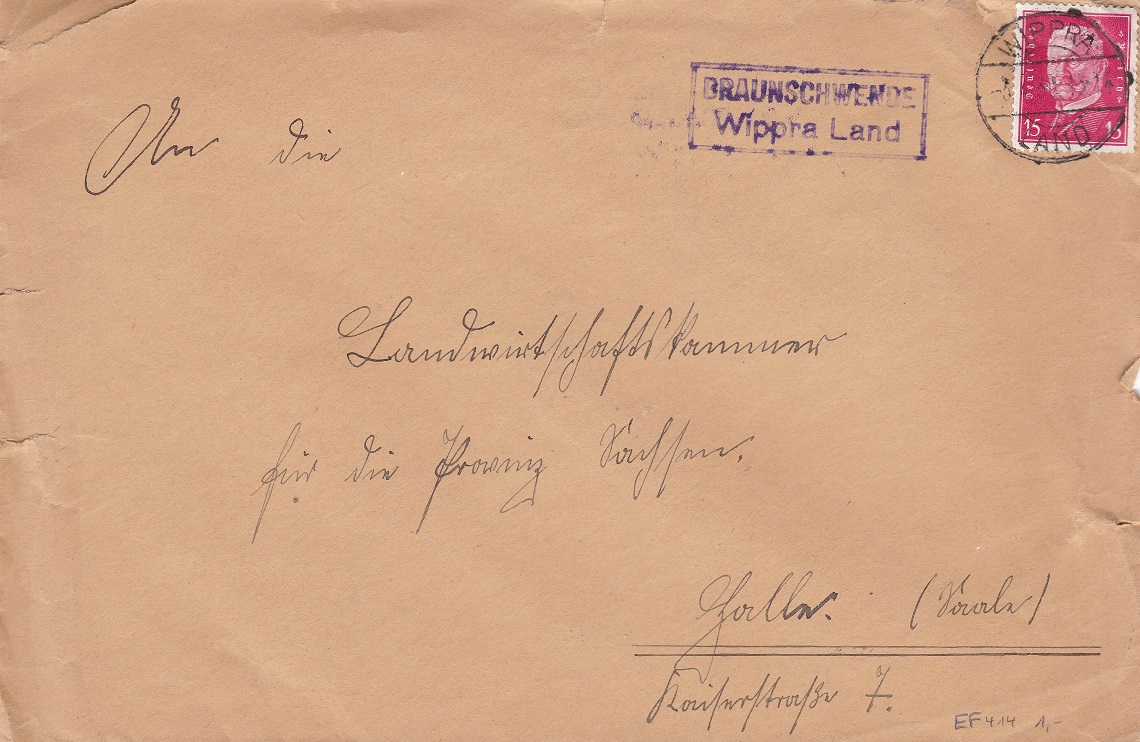 BRAUNSCHWENDE
Wippra Land
WIPPRA
LAND
15 15
An die
Landwirtschaftskammer
für die Provinz Sachsen.
Halle. (Saale)
Kaiserstraße 7.
EF 414 1,-